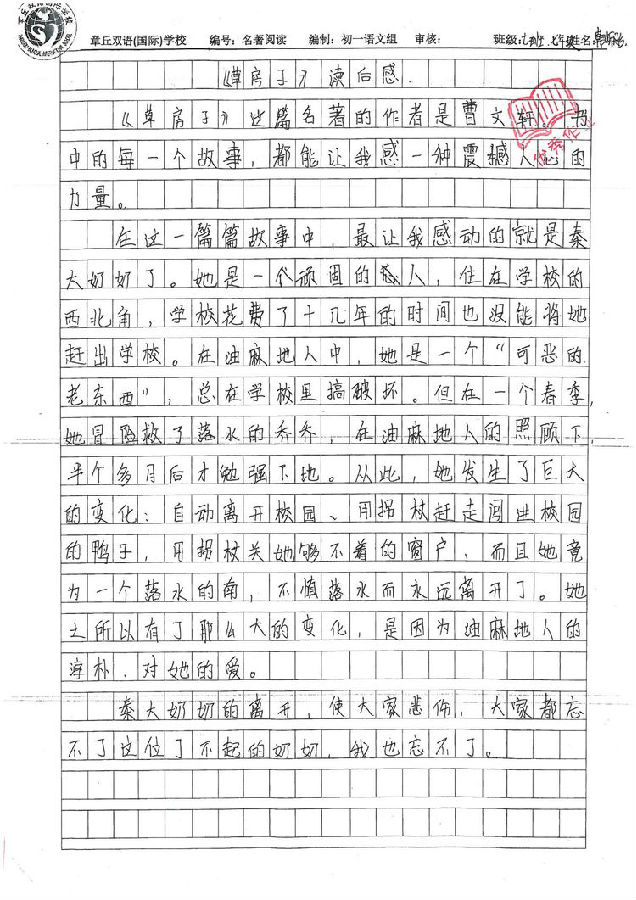 章丘双语(国际)学校 编号：名著阅读 编制：初一语文组 审核： 班级： 姓名：
《草房子》读后感
《草房子》这篇名著的作者是曹文轩。书
中的每一个故事，都能让我感一种震撼人心的
力量。
在这一篇篇故事中，最让我感动的就是秦
大奶奶了。她是一个顽固的敌人，住在学校的
西北角，学校花费了十几年的时间也没能将她
赶出学校。在油麻地人中，她是一个“可恶的
老东西”，总在学校里搞破坏。但在一个春季，
她冒险救了落水的乔乔，在油麻地人的照顾下，
半个多月后才勉强下地。从此，她发生了巨大
的变化：自动离开校园、用拐杖赶走闯进校园
的鸭子，用拐杖关她够不着的窗户，而且她竟
为一个落水的南，不慎落水而永远离开了。她
之所以有了那么大的变化，是因为油麻地人的
淳朴，对她的爱。
秦大奶奶的离开，使大家悲伤，大家都忘
不了这位了不起的奶奶，我也忘不了。